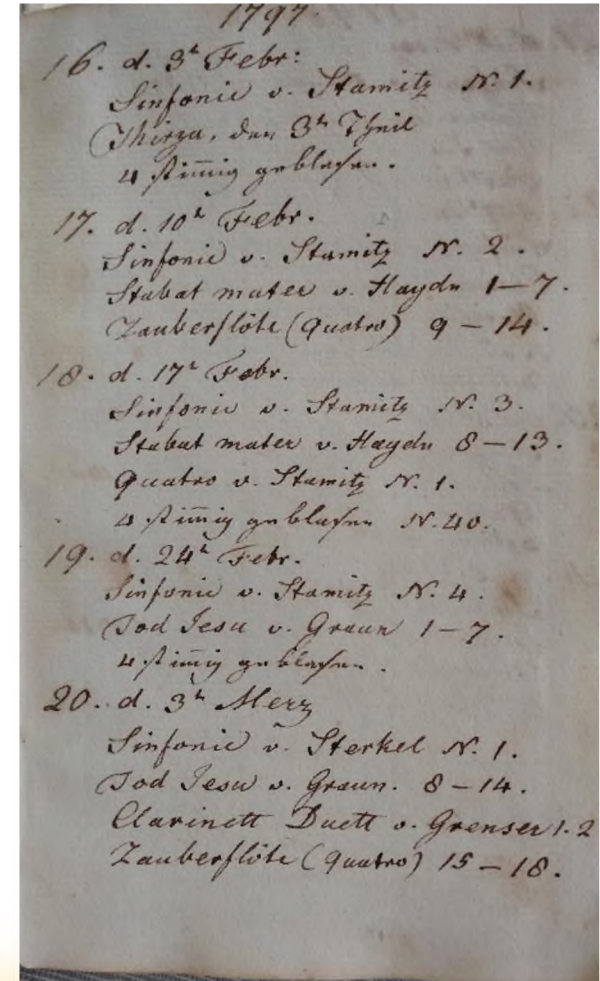 1797.
16. d. 3t Febr:
Sinfonie v. Stamitz N. 1.
Thirza, den 3t Theil
4 stim̄ig geblasen.
17. d. 10t Febr.
Sinfonie v. Stamitz N. 2.
Stabat mater v. Haydn 1—7.
Zauberflöte (Quatro) 9—14.
18. d. 17t Febr.
Sinfonie v. Stamitz N. 3.
Stabat mater v. Haydn 8—13.
Quatro v. Stamitz N. 1.
4 stim̄ig geblasen N. 40.
19. d. 24t Febr.
Sinfonie v. Stamitz N. 4.
Tod Jesu v. Graun 1—7.
4 stim̄ig geblasen.
20. d. 3t Merz
Sinfonie v. Sterkel N. 1.
Tod Jesu v. Graun. 8—14.
Clarinett Duett v. Grenser 1. 2
Zauberflöte (Quatro) 15—18.